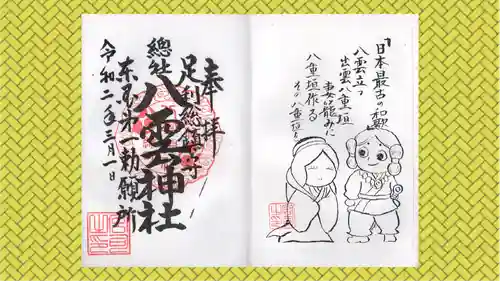 「日本最古の和歌
八雲立つ
出雲八重垣
妻籠みに
八重垣作る
その八重垣を
奉拝
足利総鎮守
總社 八雲神社
東国第一勅願所
令和二年三月一日